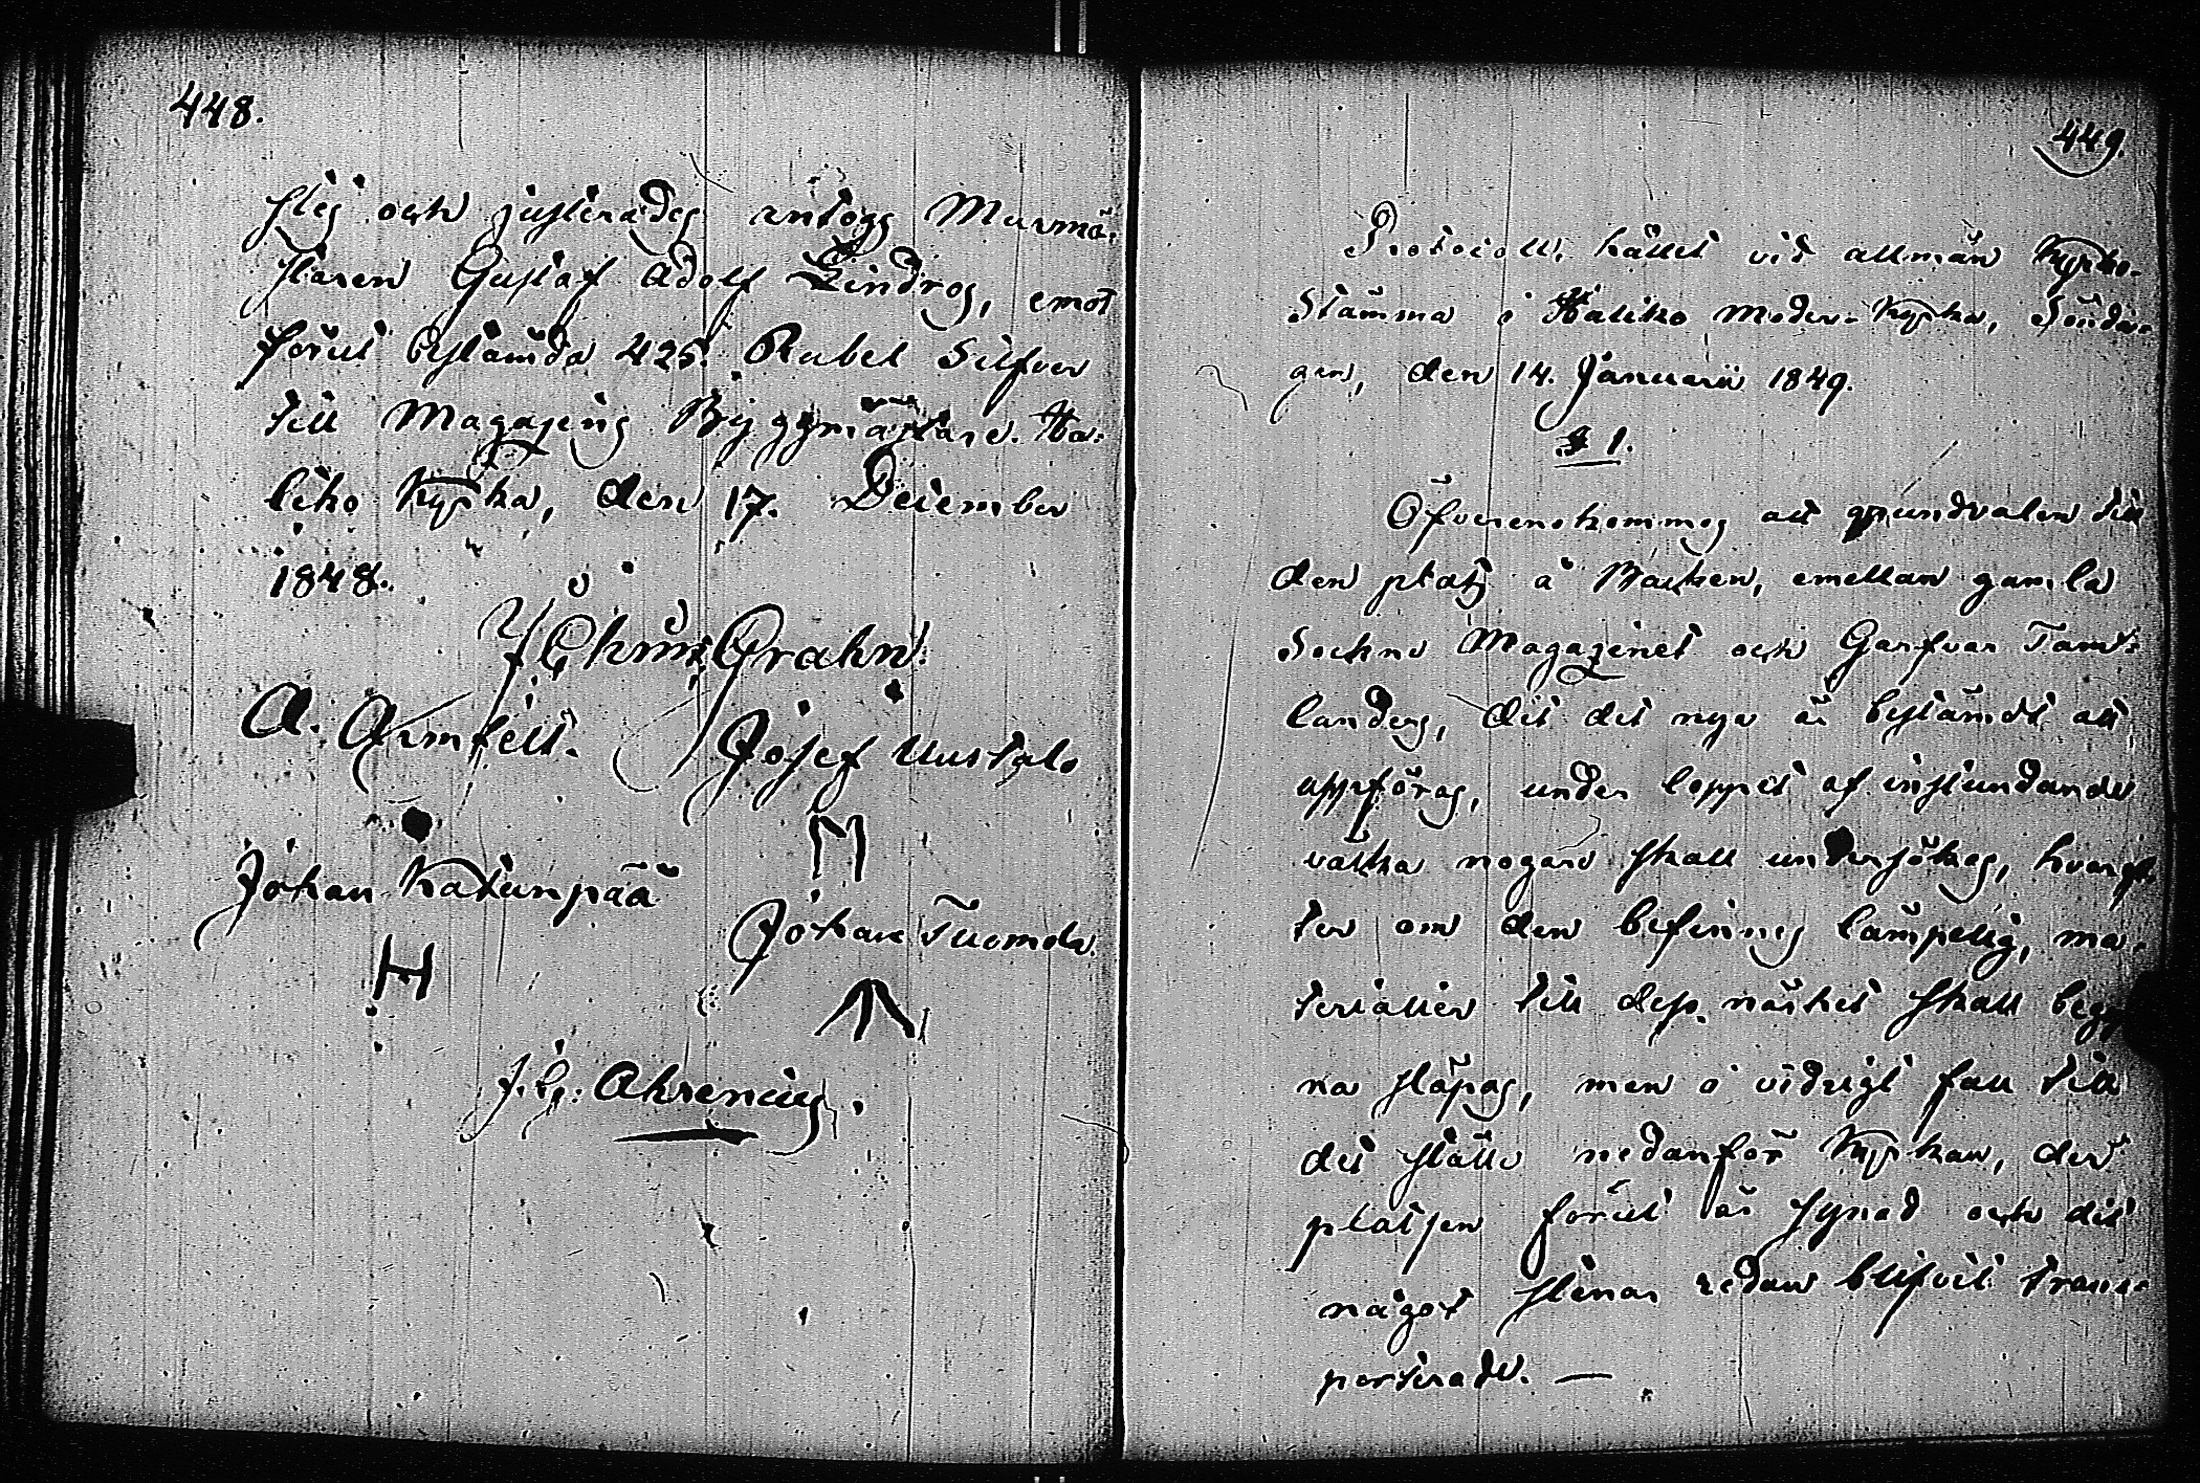 448.
stes och justerades antogs Murmä-
staren Gustaf Adolf Lindros, emot
förut bestämda 425. Rubel Silfver
till Magazins Byggmästare. Ha-
liko Kyrka, den 17. December
1848.
Chris Grahn.
A. Armfelt.
Josef Uustalo
M
Johan Katunpää
Johan Tuomola.
H
J. G. Ahrenius.
449.
Protocoll, hållet vid allmän Kyrko-
Stämma i Haliko Moder-Kyrka, Sönda-
gen, den 14. Januarii 1849.
§ 1.
Öfverenskommes att grundvalen till
den plats å Backen, emellan gamla
Sockne Magazinet och Garfvar Tamt-
landers, dit det nya är bestämdt att
uppföras, under loppet af instundande
vecka nogare skall undersökas, hvaref-
ter om den befinnes lämpelig, ma-
terialier till dess närhet skall begyn-
na släpas, men i vidrigt fall till
det ställe nedanför Kyrkan, der
platsen förut är synad och dit
något stenar redan blifvit trans-
porterade. —